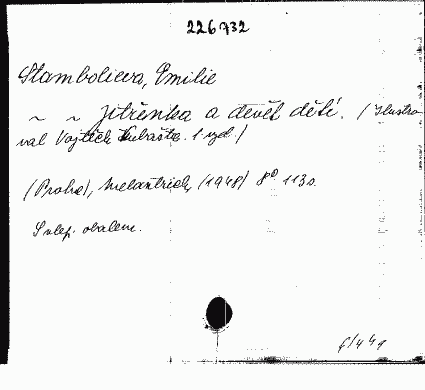 226732
Stambolieva, Emilie
~ ~ Jitřenka a devět dětí. (Ilustro-
val Vojtěch Kubašta. 1 vyd.)
(Praha), Melantrich, (1948) 8° 113 s.
S slep. obalem.